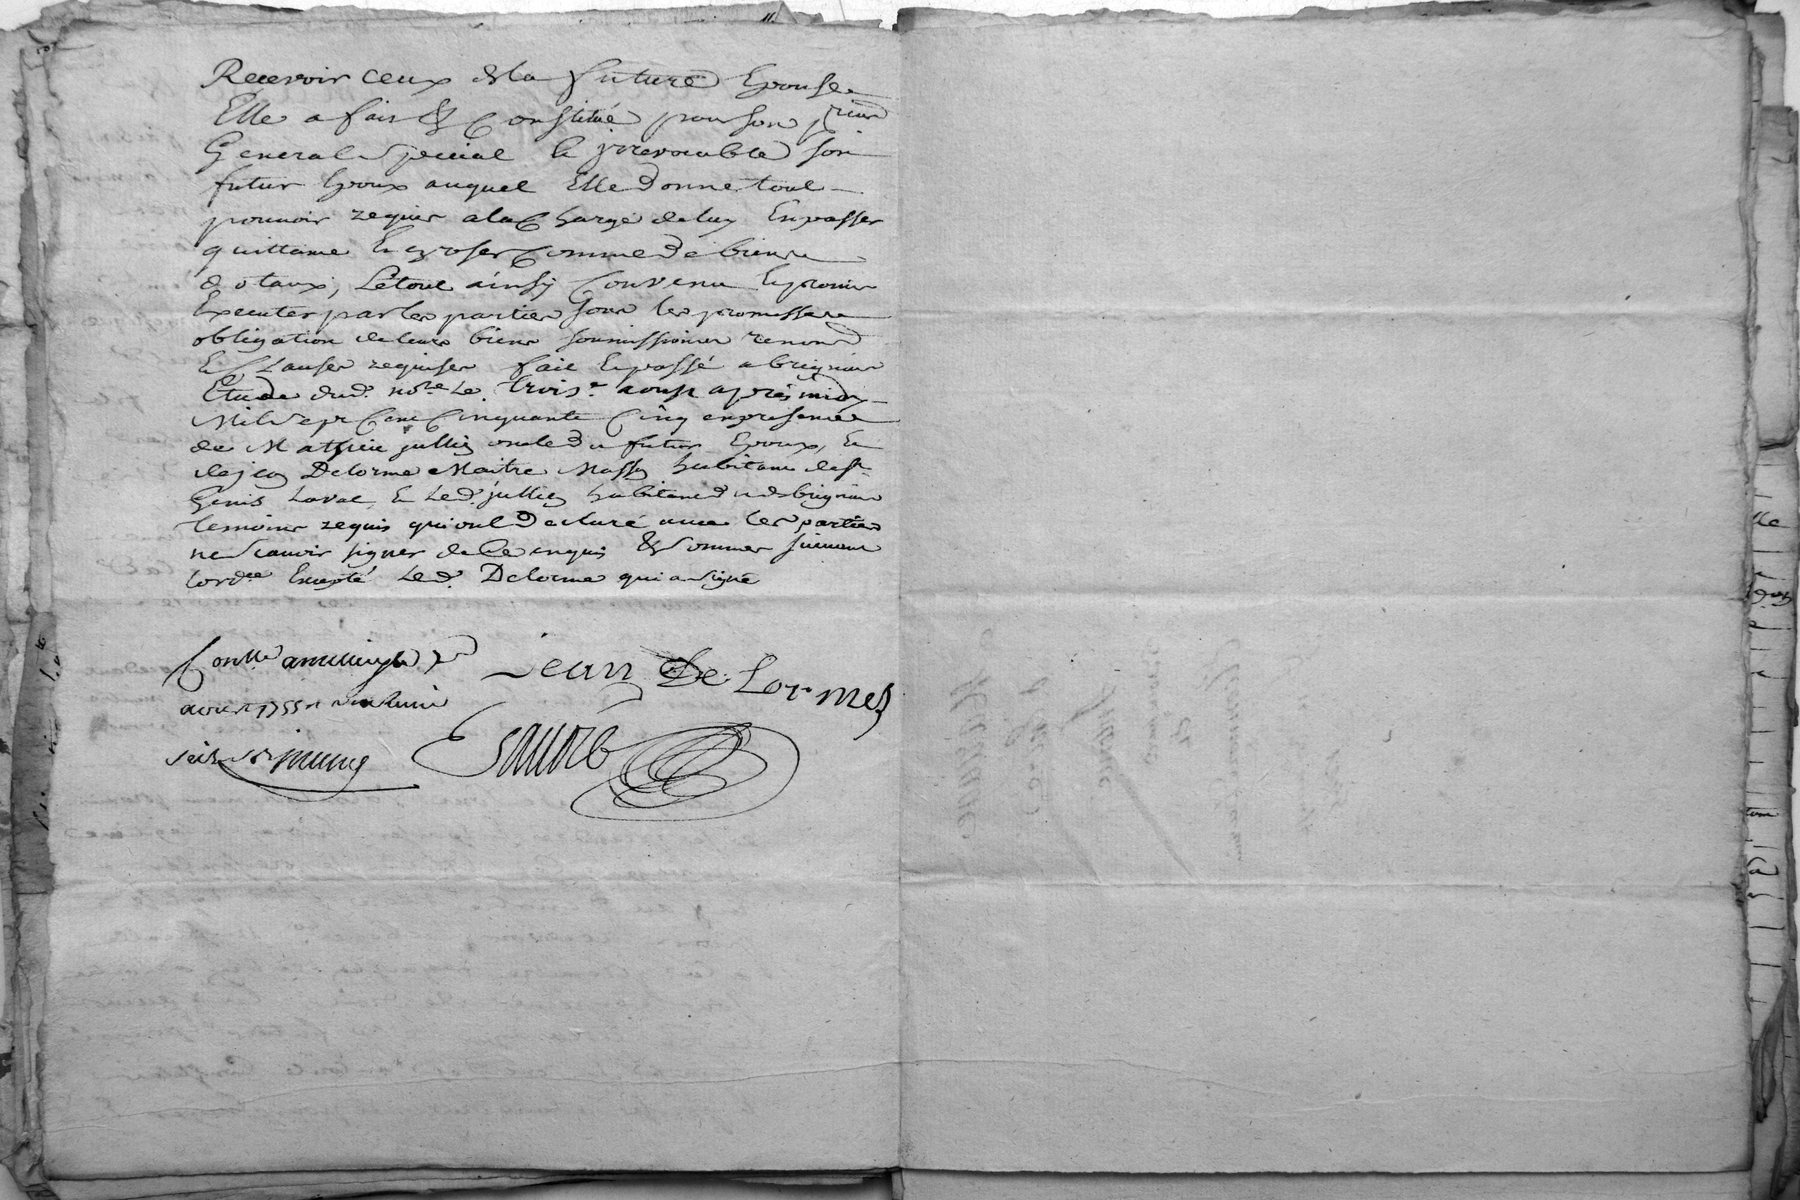 Recevoir ceux de la future Epouse
Elle a fait & Constitué pour son preur
General Special & jrrevocable son
futur Epoux auquel Elle donne tout
pouvoir requis a la Charge de luy En passer
quittance Et Comme de biens
dotaux, Le tout ainsy Convenu Et promis
Executer par les parties sous les promesses
obligation de leurs biens soumissions renond
Et Clauses requises fait Et passé a brignais
Etude dud. nore Le troise aoust après midy
Mil Sept Cent Cinquante Cinq en presence
de Mathieu jullien oncle du futur Epoux, Et
de Delorme Maitre Masson habitant de st
Genis Laval, & Led. jullien habitant dud brignais
temoins requis qui ont declaré avec les parties
ne Scavoir signer de Ce enquis & Sommes suivant
lordce Excepté Led. Delorme qui a signé
Jean De Lorme
Conllé
aoust 1755
seize